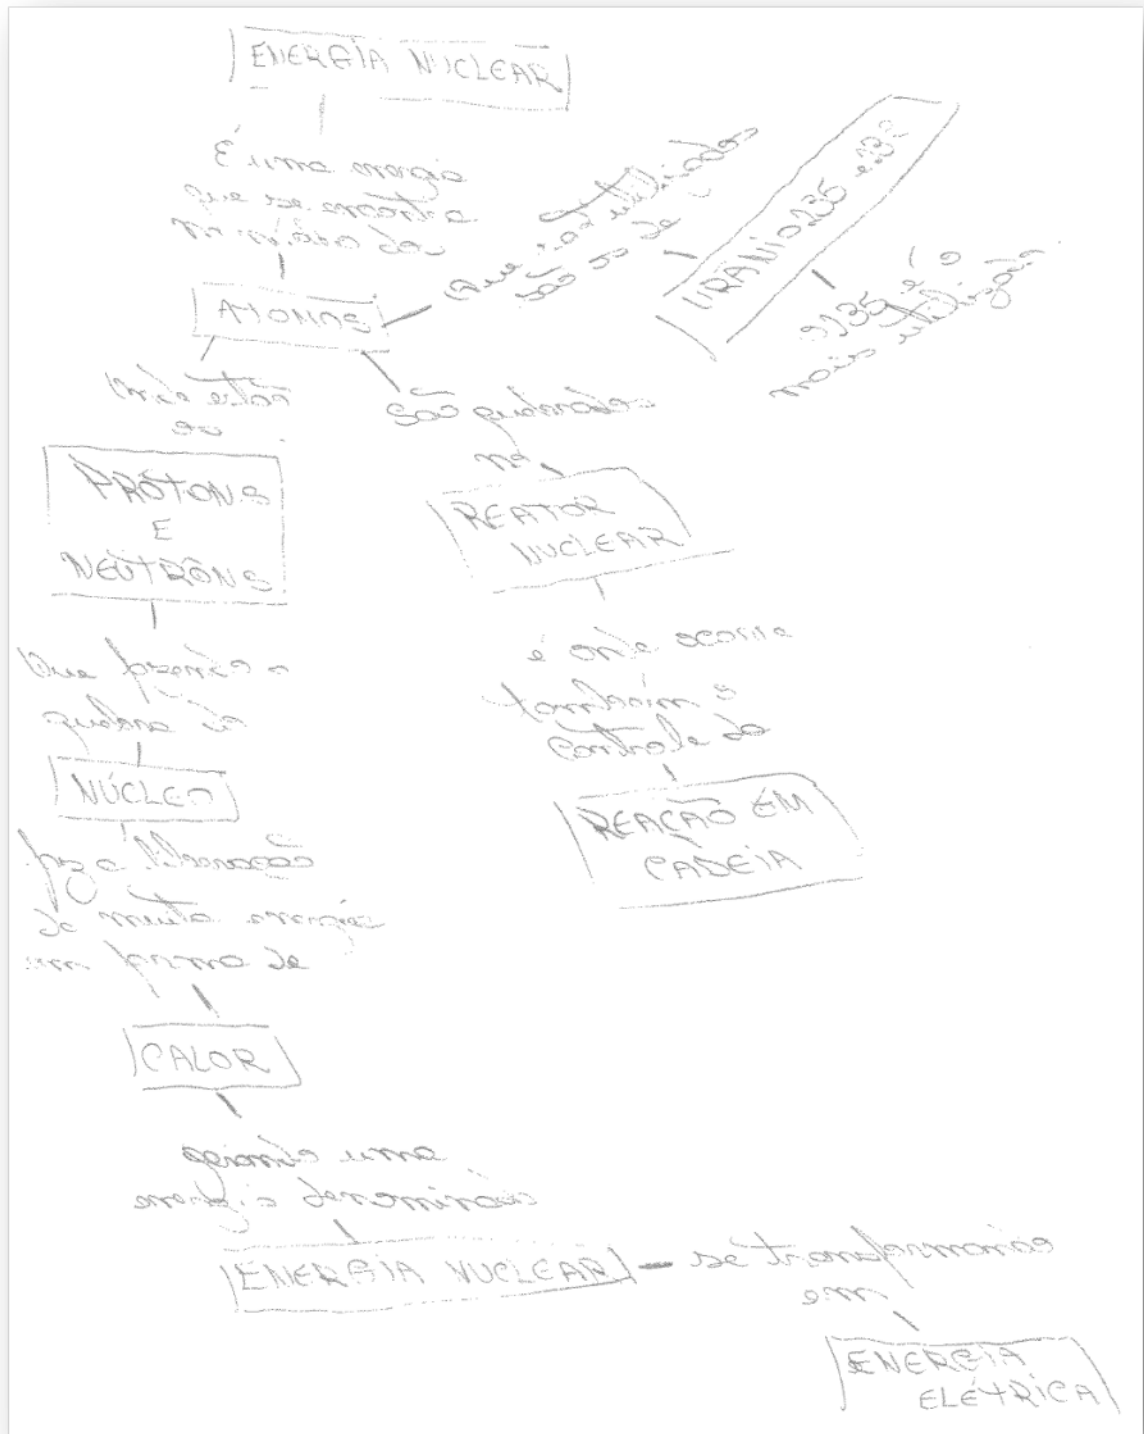 ENERGIA NUCLEAR
É uma energia
que se encontra
no núcleo dos
ÁTOMOS
Que são utilizados
são os de
URÂNIO 235 e
235 é o
mais utilizado
Onde estão
os
PRÓTONS
E
NEUTRONS
Que fazendo a
quebra do
NÚCLEO
faz a liberação
de muita energia
em forma de
CALOR
gerando uma
energia denominada
ENERGIA NUCLEAR
se transformando
em
ENERGIA
ELÉTRICA
São quebrados
no
REATOR
NUCLEAR
é onde ocorre
também o
controle da
REAÇÃO EM
CADEIA